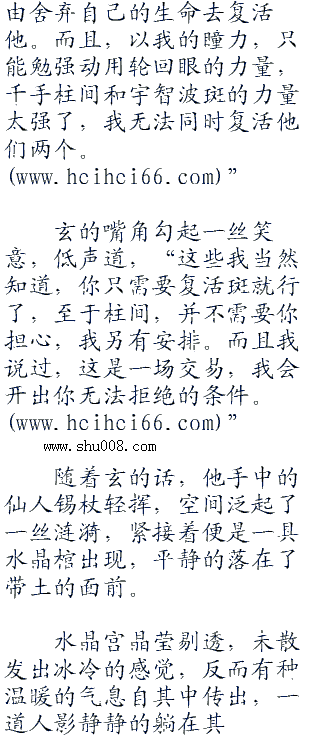 由舍弃自己的生命去复活
他。而且，以我的瞳力，只
能勉强动用轮回眼的力量，
千手柱间和宇智波斑的力量
太强了，我无法同时复活他
们两个。
(www.hcihci66.com)”
玄的嘴角勾起一丝笑
意，低声道，“这些我当然
知道，你只需要复活斑就行
了，至于柱间，并不需要你
担心，我另有安排。而且我
说过，这是一场交易，我会
开出你无法拒绝的条件。
(www.hcihci66.com)”
www.shu008.com
随着玄的话，他手中的
仙人锡杖轻挥，空间泛起了
一丝涟漪，紧接着便是一具
水晶棺出现，平静的落在了
带土的面前。
水晶宫晶莹剔透，未散
发出冰冷的感觉，反而有种
温暖的气息自其中传出，一
道人影静静的躺在其